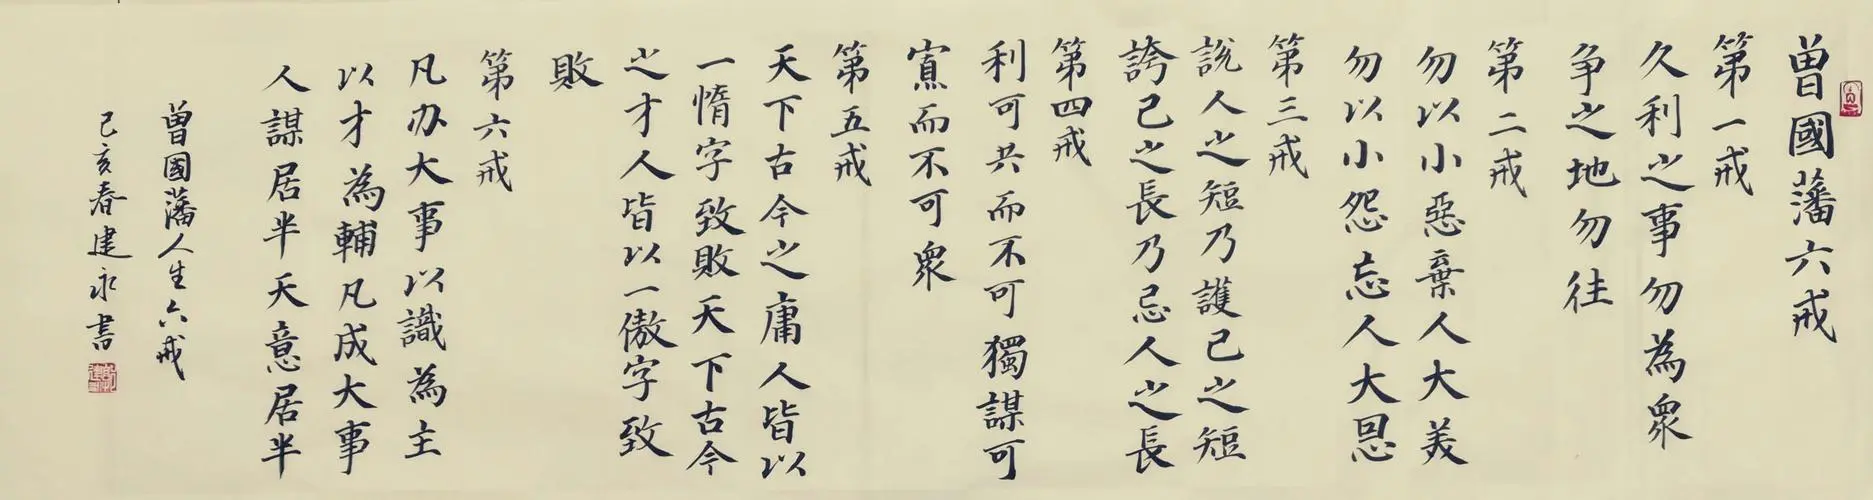 曾國藩六戒
第一戒
久利之事勿為衆
争之地勿往
第二戒
勿以小惡棄人大美
勿以小怨忘人大恩
第三戒
說人之短乃護己之短
誇己之長乃忌人之長
第四戒
利可共而不可獨謀可
寡而不可衆
第五戒
天下古今之庸人皆以
一惰字致敗天下古今
之才人皆以一傲字致
敗
第六戒
凡办大事以識為主
以才為輔凡成大事
人謀居半天意居半
曾國藩人生六戒
己亥春建永書